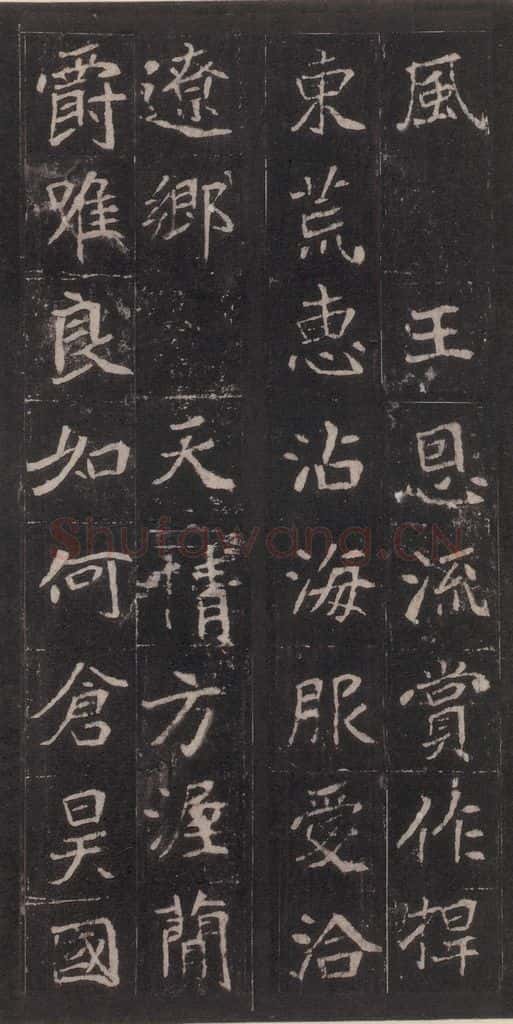 風 王恩流賞作捍
東荒惠沾海服愛洽
遼鄉 天情方渥簡
爵唯良如何倉昊國
Shufawang.CN